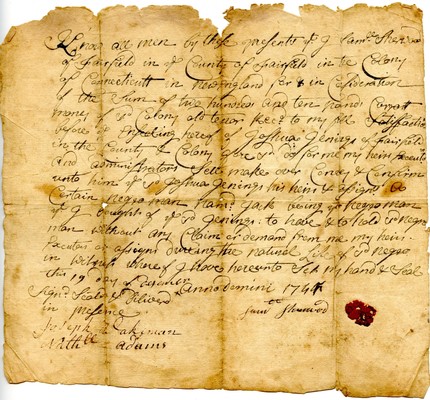 Know all men by these presents yt I Samll Sherwood
of Fairfield in ye County of Fairfield in the Colony
of Connecticutt in Newengland for & in Consideration
of the Sum of two hundred and ten pounds Currant
money of sd Colony old tenor Recd to my full Sattisfaction
before ye Ensealing hereof of Joshua Jenings of Fairfield
in the County & Colony afore sd do for me my heirs Executrs
and administrators Sell make over Convey & Confirm
unto him ye sd Joshua Jenings his heirs & assigns
Certain Negro man Named Jack being ye Negro man
yt I bought of ye sd Jenings: to have & to hold sd Negro
man without any Claim or demand from me my heirs
Executors or assigns During the natural Life of sd Negro
in witness whereof I have hereunto Set my hand & Seal
this 19 day of annodomini 174
Signd Seald & Deliverd
in presence Samll Sherwood
Joseph Wakeman
Nathll Adams